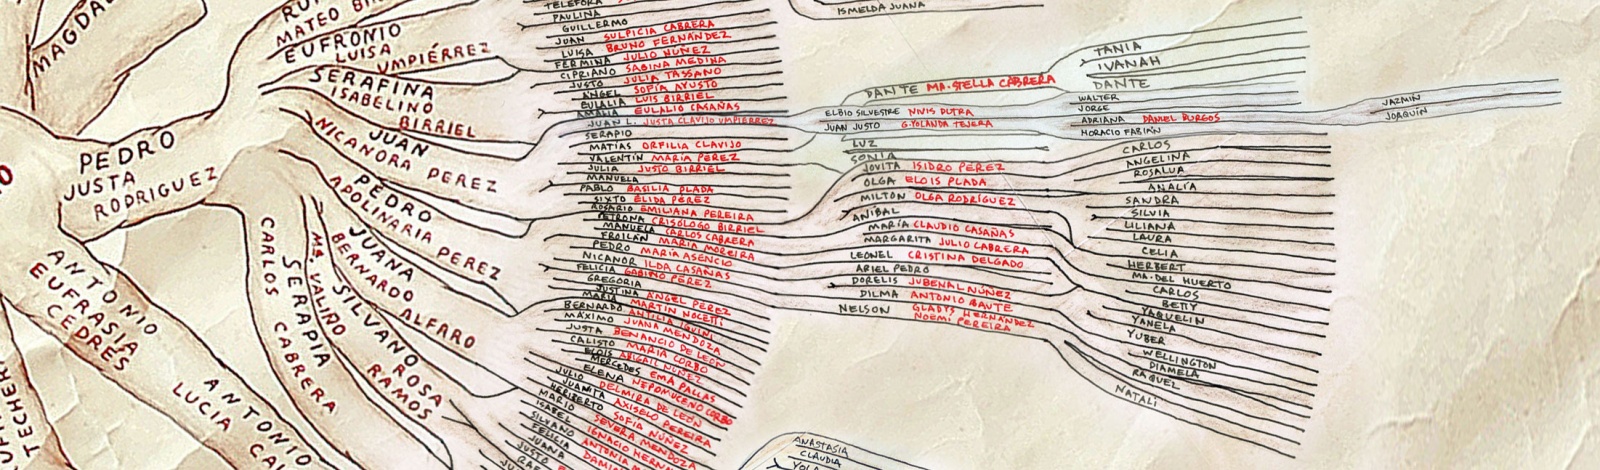 MAGDA
MATEO
EUFRONIO
LUISA
UMPIÉRREZ
SERAFINA
ISABELINO
BIRRIEL
NICANORA PEREZ
JUAN
PEDRO
JUSTA
RODRIGUEZ
PEDRO
APOLINARIA PEREZ
JUANA
BERNARDO ALFARO
SILVANO
ROSA
RAMOS
Mª VALIÑO
SERAPIA
CARLOS CABRERA
ANTONIO
EUFRASIA
CEDRÉS
ANTONIO
LUCIA
TELÉFORA
PAULINA
GUILLERMO
JUAN SULPICIA CABRERA
LUISA BRUNO FERNÁNDEZ
FERMINA JULIO NUÑEZ
CIPRIANO SABINA MEDINA
JUSTO JULIA TASSANO
ÁNGEL SOFÍA AYUSTO
EULALIA LUIS BIRRIEL
AMALIA EULALIO CASAÑAS
JUAN L. JUSTA CLAVIJO UMPIERREZ
SERAPIO
MATÍAS ORFILIA CLAVIJO
VALENTÍN MARÍA PÉREZ
JULIA JUSTO BIRRIEL
MANUELA
PABLO BASILIA PLADA
SIXTO ELIDA PÉREZ
ROSARIO EMILIANA PEREIRA
PETRONA CRISÓLOGO BIRRIEL
MANUELA CARLOS CABRERA
FROILÁN MARÍA MOREIRA
PEDRO MARÍA ASENCIO
NICANOR ILDA CASAÑAS
FELICIA GABINO PÉREZ
GREGORIA
JUSTINA ÁNGEL PEREZ
MARÍA MARTÍN NOCETTI
BERNARDO
MÁXIMO JUANA MENDOZA
JUSTA BENANCIO DE LEÓN
CALISTO MARÍA CORBO
ELOIS ABIGAIL NÚÑEZ
MERCEDES EMA PALLAS
ELENA NEPOMUCENO CORBO
JULIO DELMIRA DE LEÓN
JUANITA AXISELO PEREIRA
HERIBERTO SOFÍA NÚÑEZ
MARIO SEVERA MENDOZA
ISABEL IGNACIO
SILVANO ANTONIA
FELICIA
JUANA
JUSTO
ISMELDA JUANA
DANTE MA. STELLA CABRERA
ELBIO SILVESTRE NIVIS DUTRA
JUAN JUSTO G. YOLANDA TEJERA
LUZ
SONIA
JOVITA ISIDRO PEREZ
OLGA ELOIS PLADA
MILTON OLGA RODRÍGUEZ
ANIBAL
MARÍA CLAUDIO CASAÑAS
MARGARITA JULIO CABRERA
LEONEL CRISTINA DELGADO
ARIEL PEDRO
DORELIS JUBENAL NÚÑEZ
DILMA ANTONIO BAUTE
NELSON GLADYS HERNÁNDEZ
NOEMÍ PEREIRA
TANIA
IVANAH
DANTE
WALTER
JORGE
ADRIANA DANIEL BURGOS
HORACIO FABIÁN
JAZMIN
JOAQUÍN
CARLOS
ANGELINA
ROSALUA
ANALÍA
SANDRA
SILVIA
LILIANA
LAURA
CELIA
HERBERT
MA. DEL HUERTO
CARLOS
BETTY
YAQUELIN
YANELA
YUBER
WELLINGTON
DIAMELA
RAQUEL
NATALI
ANASTASIA
CLAUDIA